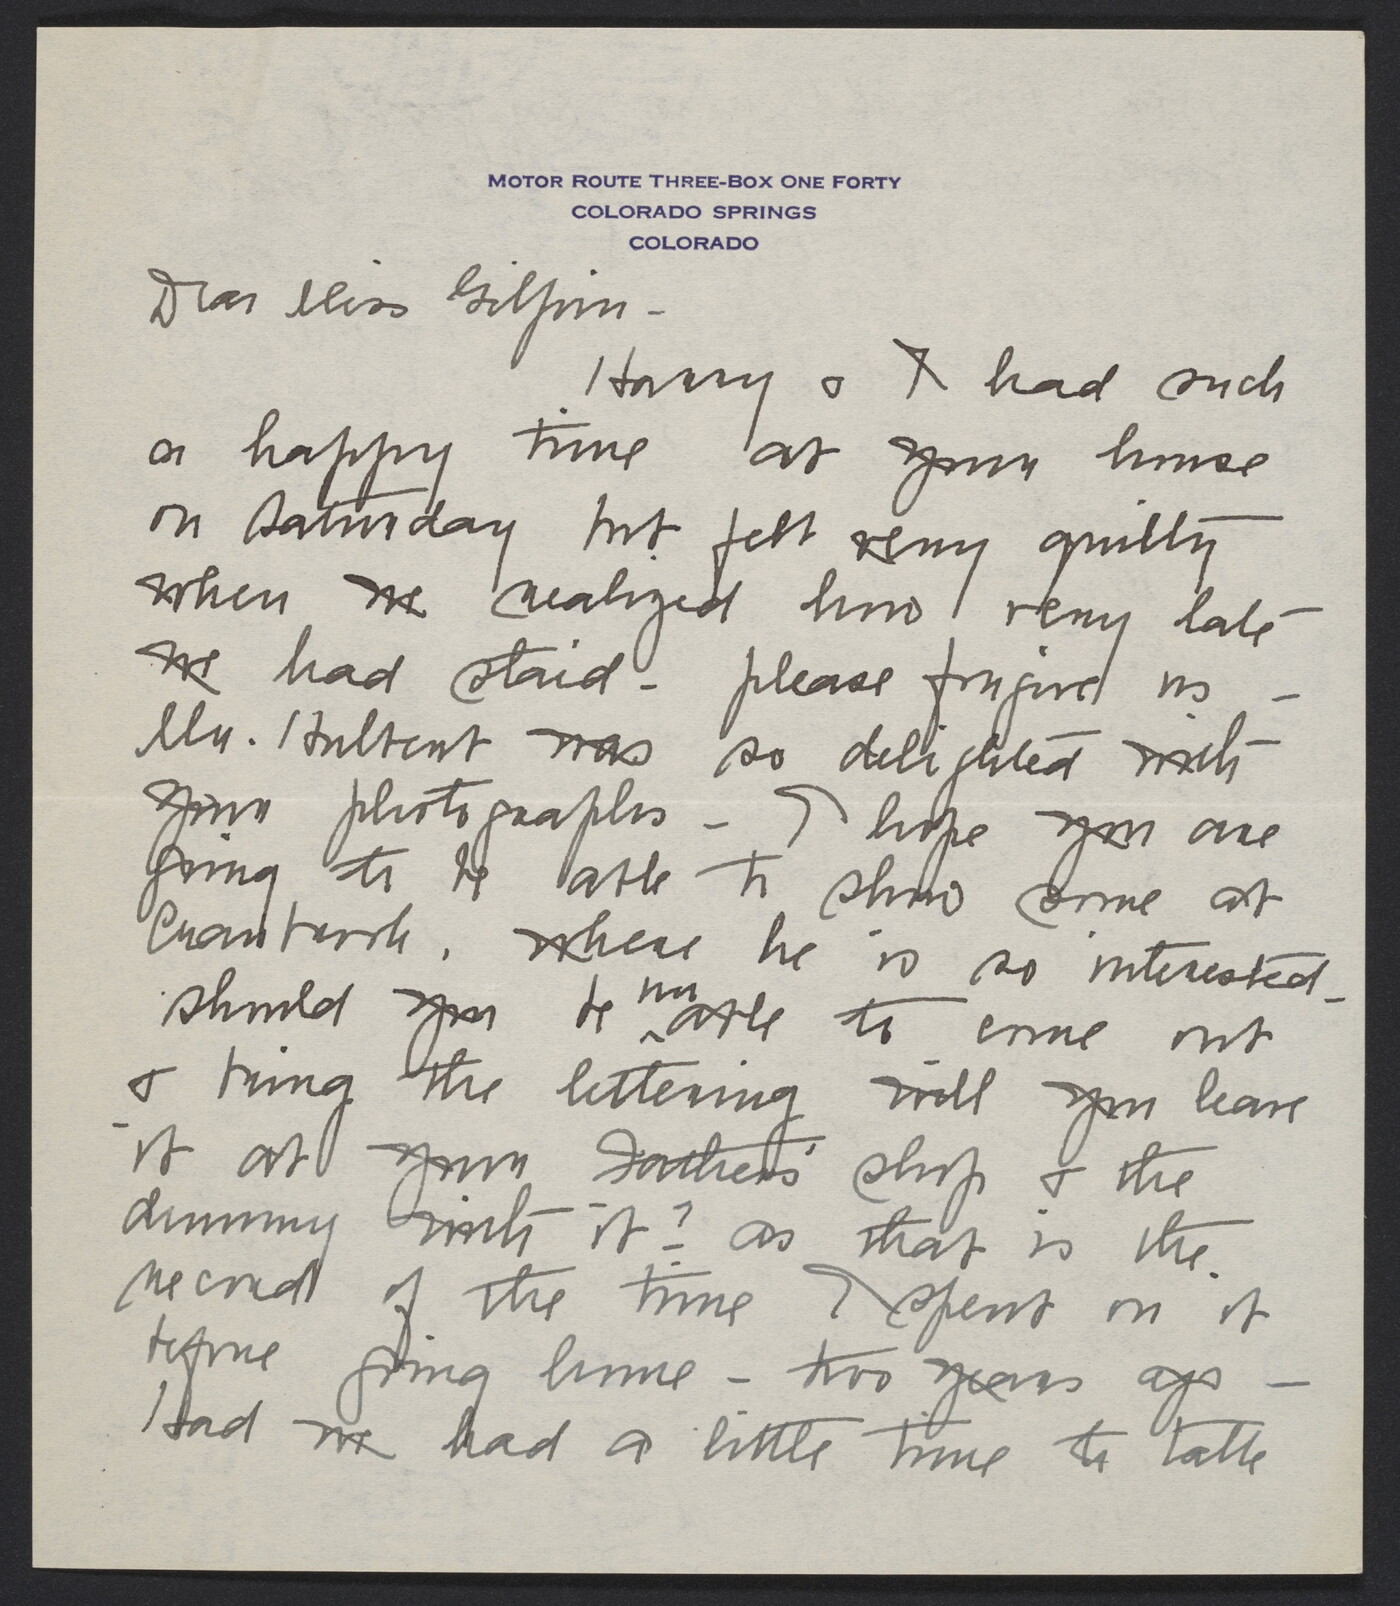 MOTOR ROUTE THREE-BOX ONE FORTY
COLORADO SPRINGS
COLORADO
Dear Miss Gilpin -
Harry & I had such
a happy time at your house
on Saturday but felt very guilty
when we realized how very late
we had staid - please forgive us -
Mr. Hulbert was so delighted with
your photographs - I hope you are
going to be able to show some at
Cranbrook, where he is so interested -
should you be unable to come out
& bring the lettering will you leave
it at your Fathers' shop & the
dummy with it? as that is the
record of the time I spent on it
before going home - two years ago -
Had we had a little time to talk